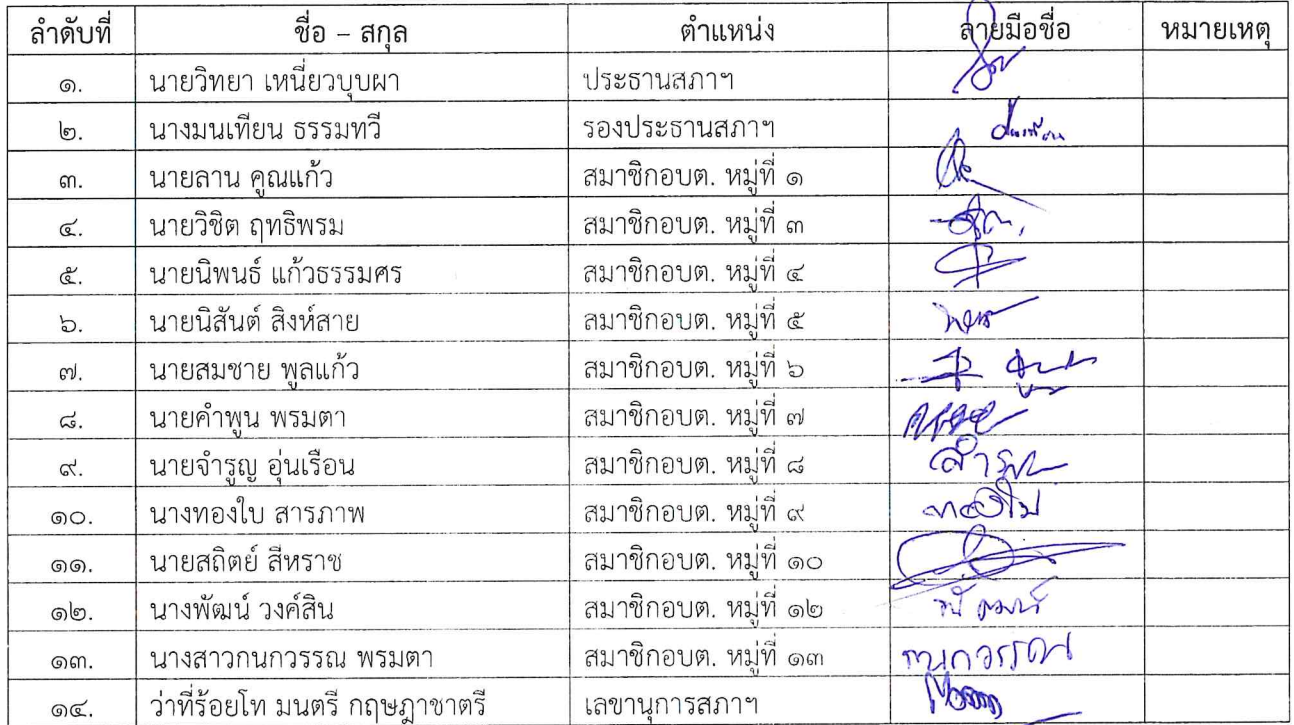 ลำดับที่ ชื่อ – สกุล ตำแหน่ง ลายมือชื่อ หมายเหตุ
๑. นายวิทยา เหนี่ยวบุบผา ประธานสภาฯ
๒. นางมนเทียน ธรรมทวี รองประธานสภาฯ
๓. นายลาน คูณแก้ว สมาชิกอบต. หมู่ที่ ๑
๔. นายวิชิต ฤทธิพรม สมาชิกอบต. หมู่ที่ ๓
๕. นายนิพนธ์ แก้วธรรมศร สมาชิกอบต. หมู่ที่ ๔
๖. นายนิสันต์ สิงห์สาย สมาชิกอบต. หมู่ที่ ๕
๗. นายสมชาย พูลแก้ว สมาชิกอบต. หมู่ที่ ๖
๘. นายคำพูน พรมตา สมาชิกอบต. หมู่ที่ ๗
๙. นายจำรูญ อุ่นเรือน สมาชิกอบต. หมู่ที่ ๘
๑๐. นางทองใบ สารภาพ สมาชิกอบต. หมู่ที่ ๙ ทองใบ
๑๑. นายสถิตย์ สีหราช สมาชิกอบต. หมู่ที่ ๑๐
๑๒. นางพัฒน์ วงค์สิน สมาชิกอบต. หมู่ที่ ๑๒
๑๓. นางสาวกนกวรรณ พรมตา สมาชิกอบต. หมู่ที่ ๑๓ กนกวรรณ
๑๔. ว่าที่ร้อยโท มนตรี กฤษฎาชาตรี เลขานุการสภาฯ